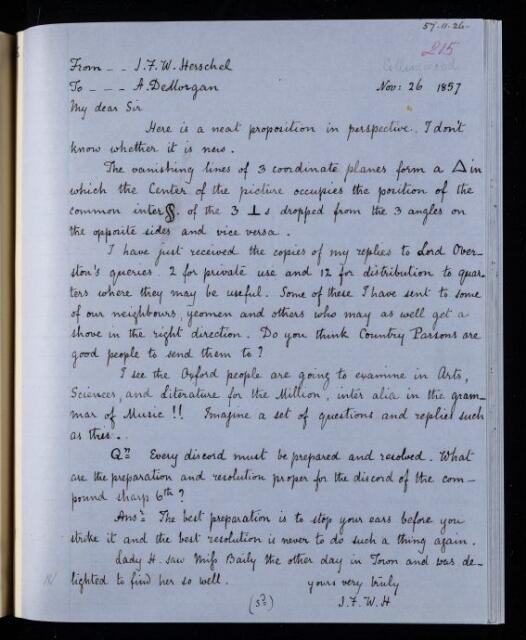 57.11.26.
215
Collingwood
From - - J.F.W. Herschel
To - - - A. DeMorgan Nov: 26 1857
My dear Sir
Here is a neat proposition in perspective. I don't
know whether it is new.
The vanishing lines of 3 coordinate planes form a △ in
which the Center of the picture occupies the position of the
common inter§. of the 3 ⊥s dropped from the 3 angles on
the opposite sides and vice versa.
I have just received the copies of my replies to Lord Over-
ston's queries. 2 for private use and 12 for distribution to quar-
ters where they may be useful. Some of these I have sent to some
of our neighbours, yeomen and others who may as well get a
shove in the right direction. Do you think Country Parsons are
good people to send them to?
I see the Oxford people are going to examine in Arts,
Sciences, and Literature for the Million, inter alia in the gram-
mar of Music!! Imagine a set of questions and replies such
as this..
Qn Every discord must be prepared and resolved. What
are the preparation and resolution proper for the discord of the com-
pound sharp 6th?
Ansr The best preparation is to stop your ears before you
strike it and the best resolution is never to do such a thing again.
Lady H. saw Miss Baily the other day in Town and was de-
lighted to find her so well. yours very truly
J.F.W.H